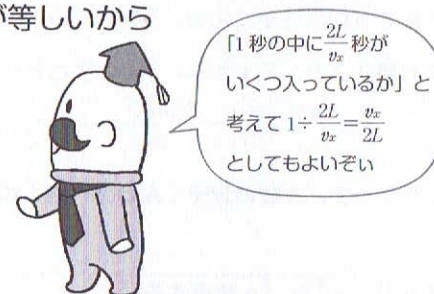 が等しいから
「1秒の中に2L/vx秒が
いくつ入っているか」と
考えて1÷2L/vx=vx/2L
としてもよいぞぃ